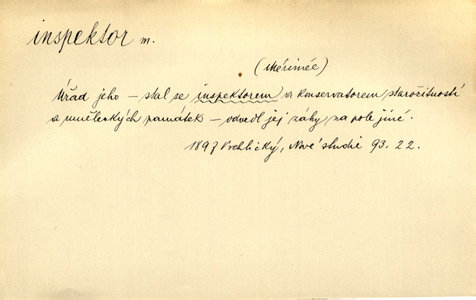 inspektor m.
(Mérimée)
Úřad jeho – stal se inspektorem a konservatorem starožitností
a uměleckých památek – odvedl jej záhy na pole jiné.
1897 Vrchlický, Nové studie 93. 22.